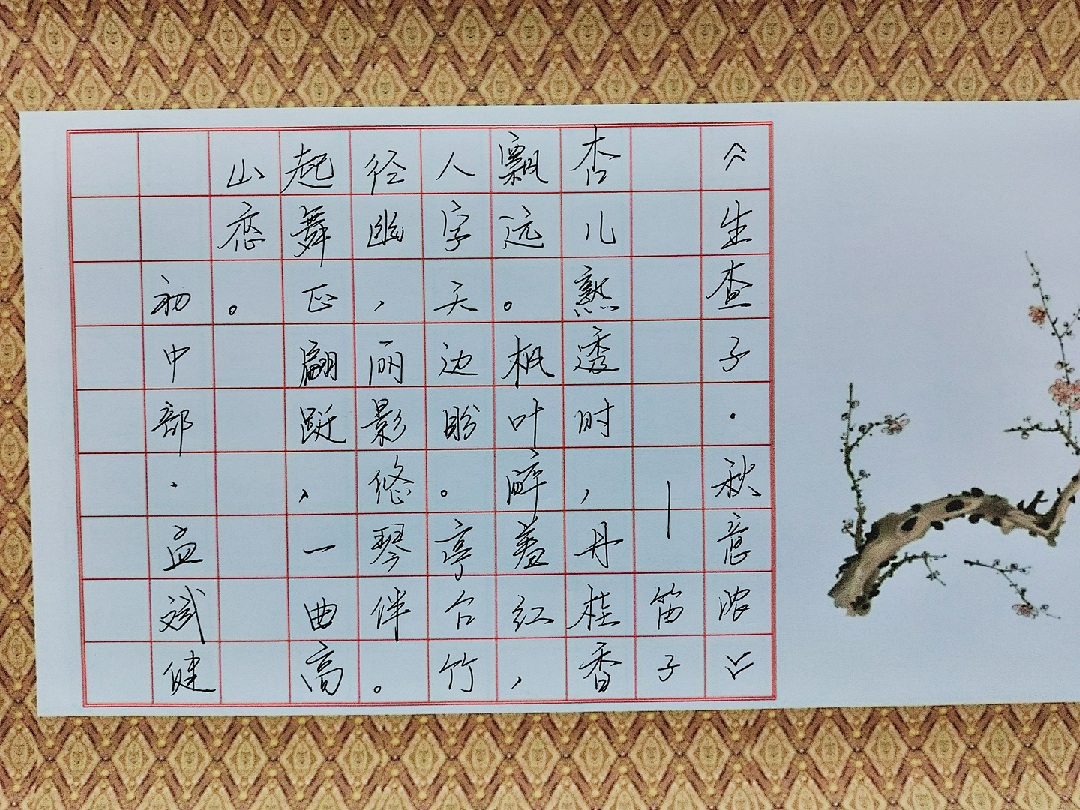 《生查子·秋意浓》
—笛子
杏儿熟透时，丹桂香
飘远。枫叶醉羞红，
人字天边盼。亭台竹
径幽，丽影悠琴伴。
起舞正翩跹，一曲高
山恋。
初中部·孟斌健